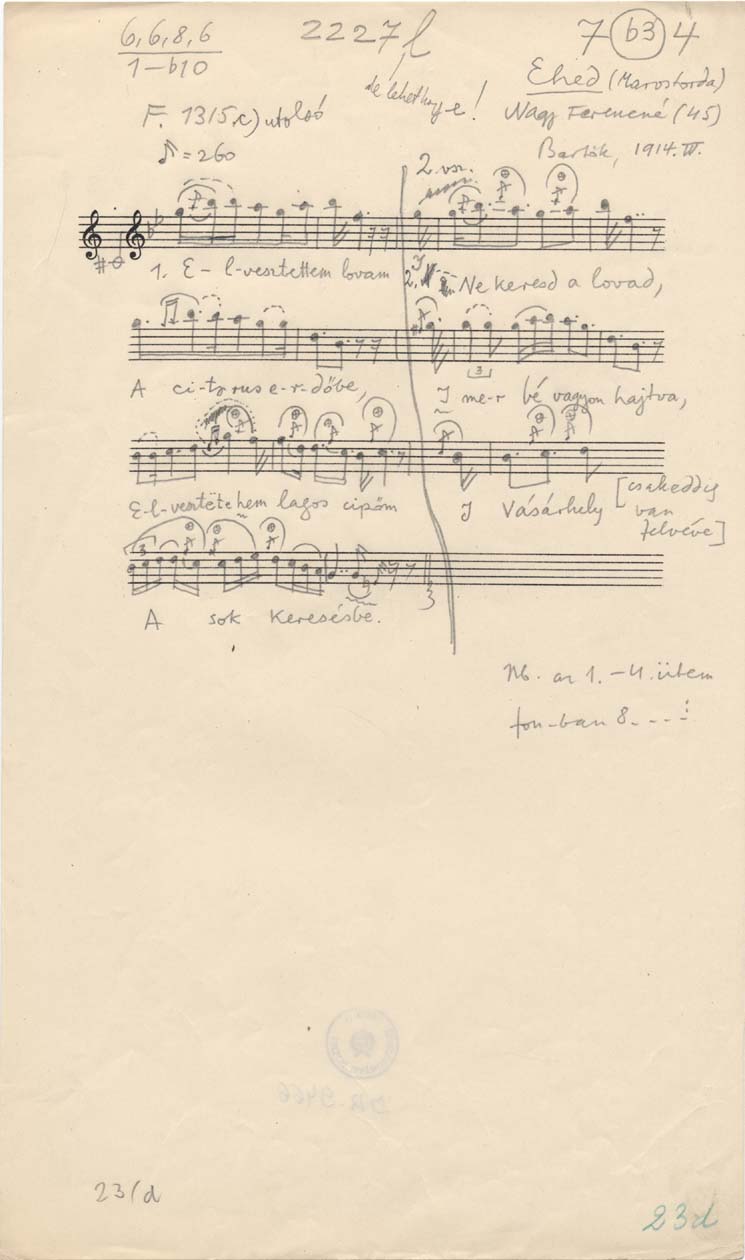 6, 6, 8, 6
1–b10
2227f
7 b3 4
de lehet hogy e!
Ehed (Marostorda)
F. 1315 c) utolsó
Nagy Ferencné (45)
♪ = 260
Bartók, 1914. IV.
2. vsz.
1. E-l-vesztettem lovam
2. Ne keresd a lovad,
A ci-t-rus e-r-dőbe,
I me-r bé vagyon hajtva,
3
E-l-vesztëtehem lagos cipőm
I Vásárhely
[csak eddig
van
felvéve]
3
A sok keresésbe.
Nb. az 1.–4. ütem
fon-ban 8
DR 9466
23/d
23d